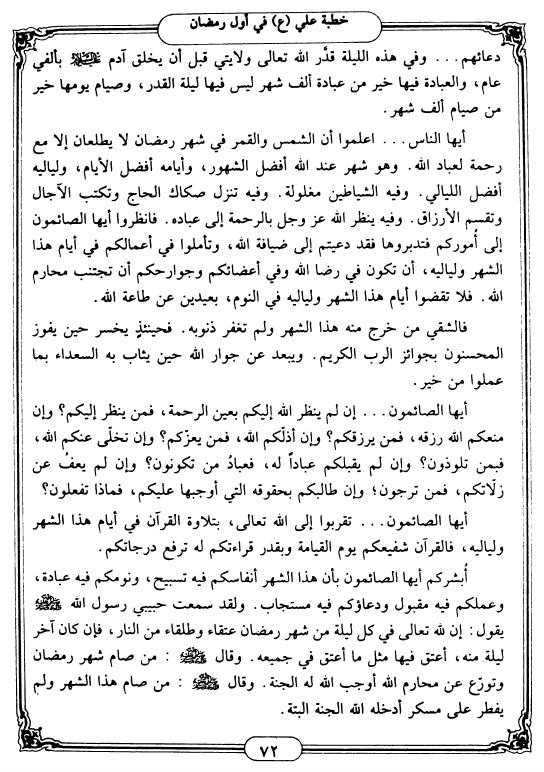 خطبة علي (ع) في أول رمضان
دعائهم... وفي هذه الليلة قدَّر الله تعالى ولايتي قبل أن يخلق آدم عليه السلام بألفي
عام، والعبادة فيها خير من عبادة ألف شهر ليس فيها ليلة القدر، وصيام يومها خير
من صيام ألف شهر.
أيها الناس... اعلموا أن الشمس والقمر في شهر رمضان لا يطلعان إلا مع
رحمة لعباد الله. وهو شهر عند الله أفضل الشهور، وأيامه أفضل الأيام، ولياليه
أفضل الليالي. وفيه الشياطين مغلولة. وفيه تنزل صكاك الحاج وتكتب الآجال
وتقسم الأرزاق. وفيه ينظر الله عز وجل بالرحمة إلى عباده. فانظروا أيها الصائمون
إلى أموركم فتدبروها فقد دعيتم إلى ضيافة الله، وتأملوا في أعمالكم في أيام هذا
الشهر ولياليه، أن تكون في رضا الله وفي أعضائكم وجوارحكم أن تجتنب محارم
الله. فلا تقضوا أيام هذا الشهر ولياليه في النوم، بعيدين عن طاعة الله.
فالشقي من خرج منه هذا الشهر ولم تغفر ذنوبه. فحينئذٍ يخسر حين يفوز
المحسنون بجوائز الرب الكريم. ويبعد عن جوار الله حين يثاب به السعداء بما
عملوا من خير.
أيها الصائمون... إن لم ينظر الله إليكم بعين الرحمة، فمن ينظر إليكم؟ وإن
منعكم الله رزقه، فمن يرزقكم؟ وإن أذلّكم الله، فمن يعزّكم؟ وإن تخلّى عنكم الله،
فبمن تلوذون؟ وإن لم يقبلكم عباداً له، فعبادُ من تكونون؟ وإن لم يعفُ عن
زلّاتكم، فمن ترجون؛ وإن طالبكم بحقوقه التي أوجبها عليكم، فماذا تفعلون؟
أيها الصائمون... تقربوا إلى الله تعالى، بتلاوة القرآن في أيام هذا الشهر
ولياليه، فالقرآن شفيعكم يوم القيامة وبقدر قراءتكم له ترفع درجاتكم.
أُبشركم أيها الصائمون بأن هذا الشهر أنفاسكم فيه تسبيح، ونومكم فيه عبادة،
وعملكم فيه مقبول ودعاؤكم فيه مستجاب. ولقد سمعت حبيبي رسول الله ﷺ
يقول: إن لله تعالى في كل ليلة من شهر رمضان عتقاء وطلقاء من النار، فإن كان آخر
ليلة منه، أعتق فيها مثل ما أعتق في جميعه. وقال ﷺ: من صام شهر رمضان
وتورّع عن محارم الله أوجب الله له الجنة. وقال ﷺ: من صام هذا الشهر ولم
يفطر على مسكر أدخله الله الجنة البتة.
٧٢